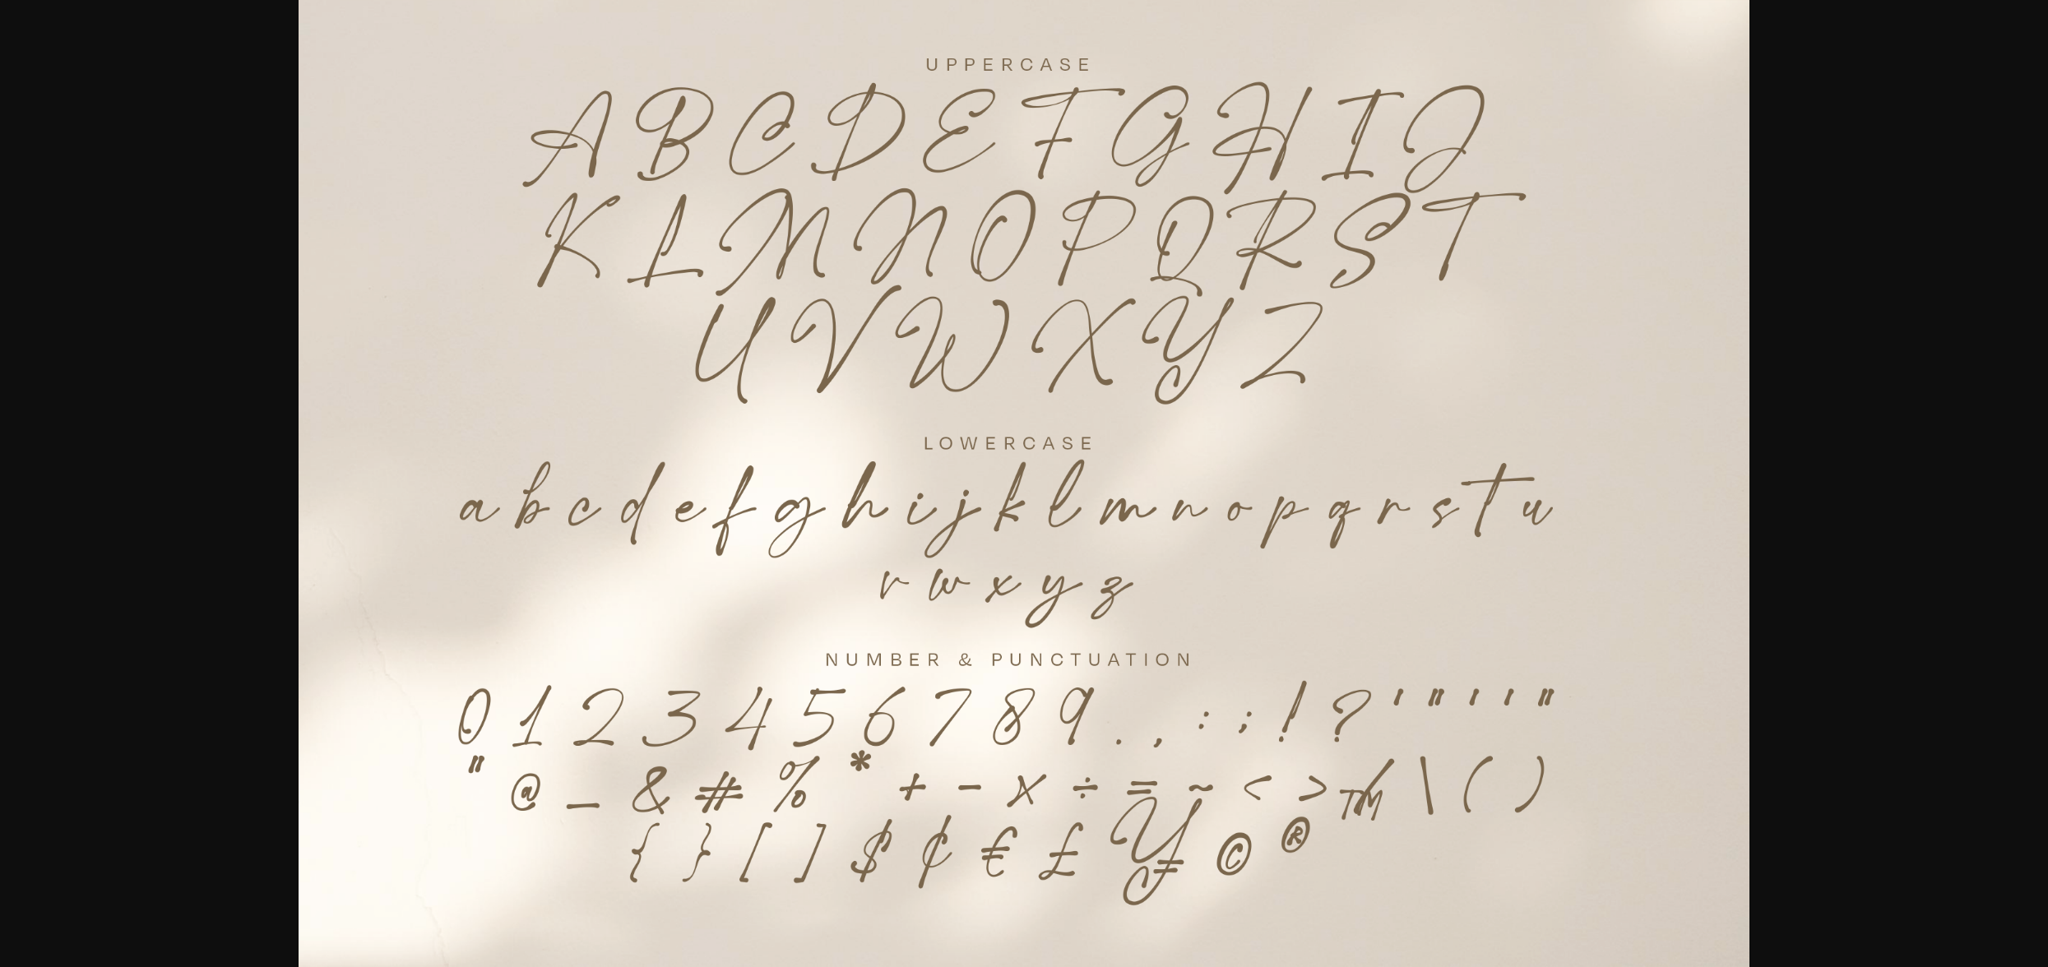 UPPERCASE
A B C D E F G H I J
K L M N O P Q R S T
U V W X Y Z
LOWERCASE
a b c d e f g h i j k l m n o p q r s t u
v w x y z
NUMBER & PUNCTUATION
0 1 2 3 4 5 6 7 8 9 . , : ; ! ? ' " ' ' "
" @ _ & # % * + - × ÷ = ~ < > ™ / \ ( )
{ } [ ] $ ¢ € £ ¥ © ®